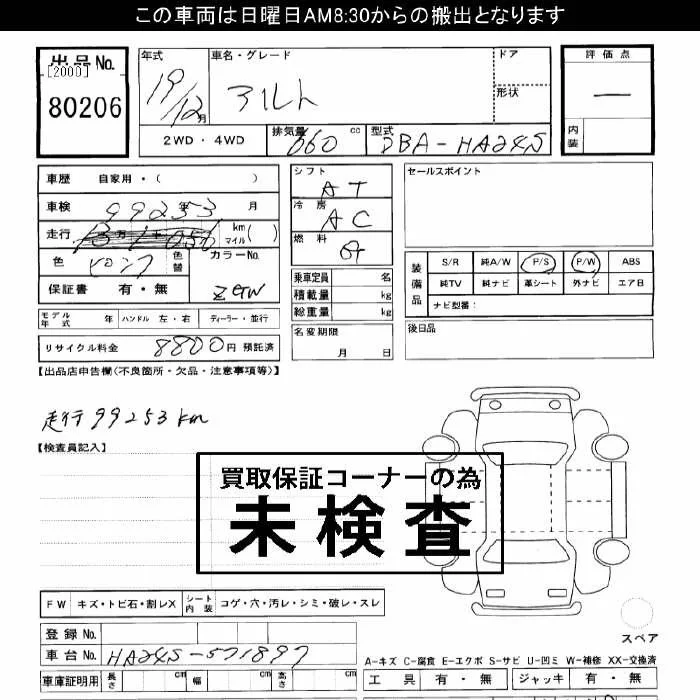 この車両は日曜日AM8:30からの搬出となります
出品No. [2000] 80206
年式 19/12月
車名・グレード アルト
ドア
形状
2WD・4WD
排気量 660 cc
型式 DBA-HA24S
評価点 —
内装
車歴 自家用・( )
車検 99253 年 月
走行 km マイル( )
色 ピンク 色替 カラーNo.
保証書 有・無 ZGW
モデル年式 年 ハンドル 左・右 ディーラー・並行
リサイクル料金 8800円 預託済
シフト AT
冷房 AC
燃料
乗車定員 名
積載量 kg
総重量 kg
名変期限 月 日
セールスポイント
装備品 S/R 純A/W P/S P/W ABS
純TV 純ナビ 革シート 外ナビ エアB
ナビ型番:
後日品
【出品店申告欄(不良箇所・欠品・注意事項等)】
走行99253km
【検査員記入】
買取保証コーナーの為
未検査
FW キズ・トビ石・割レX シート内装 コゲ・穴・汚レ・シミ・破レ・スレ
登録No.
車台No. HA24S-571897
車庫証明用 長さ cm 幅 cm 高さ cm
スペア
A-キズ C-腐食 E-エクボ S-サビ U-凹ミ W-補修 XX-交換済
工具 有・無 ジャッキ 有・無